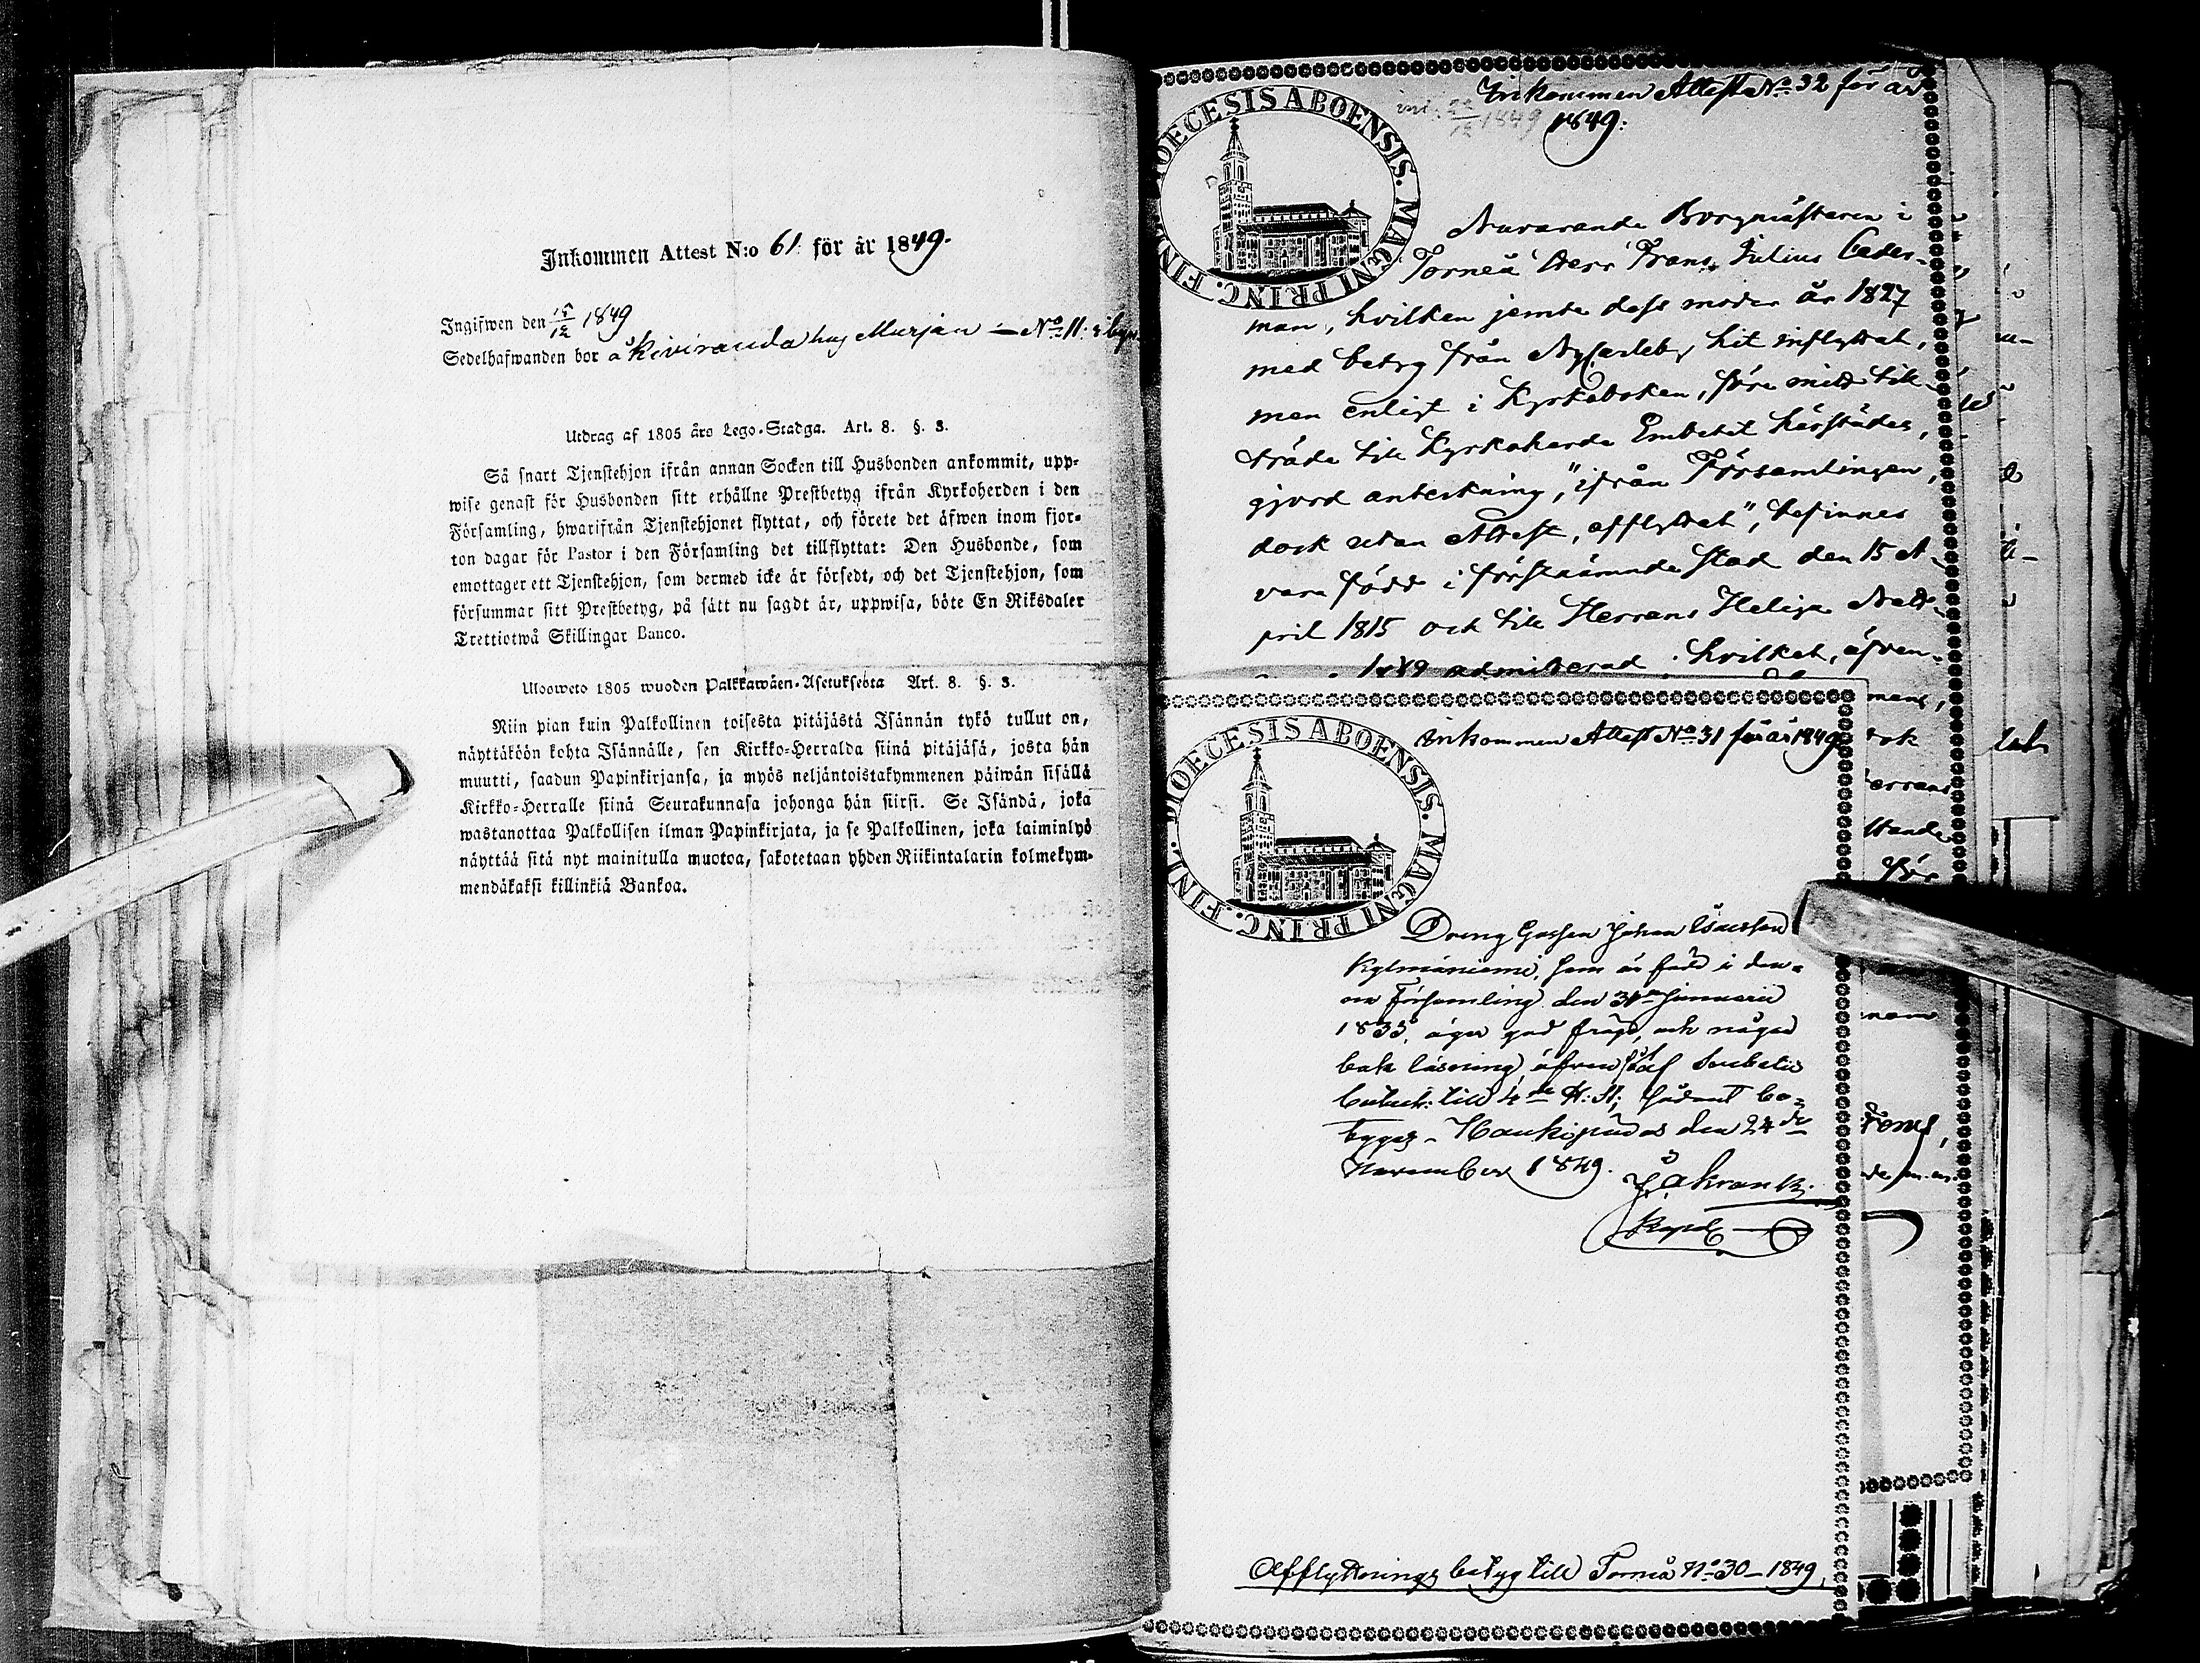 Inkommen Attest N:o 61. för år 1849.
Ingifwen den 15/12 1849
Sedelhafwanden bor å Kiviranda hos Murjan — No 11. i byn
Utdrag af 1805 års Lego-Stadga. Art. 8. §. 3.
Så snart Tjenstehjon ifrån annan Socken till Husbonden ankommit, upp-
wise genast för Husbonden sitt erhållne Prestbetyg ifrån Kyrkoherden i den
Församling, hwarifrån Tjenstehjonet flyttat, och förete det äfwen inom fjor-
ton dagar för Pastor i den Församling det tillflyttat: Den Husbonde, som
emottager ett Tjenstehjon, som dermed icke är försedt, och det Tjenstehjon, som
försummar sitt Prestbetyg, på sätt nu sagdt är, uppwisa, böte En Riksdaler
Trettiotwå Skillingar Banco.
Ulosweto 1805 wuoden Palkkawäen-Asetuksesta Art. 8. §. 3.
Niin pian kuin Palkollinen toisesta pitäjästä Isännän tykö tullut on,
näyttäköön kohta Isännälle, sen Kirkko-Herralda siinä pitäjäsä, josta hän
muutti, saadun Papinkirjansa, ja myös neljäntoistakymmenen päiwän sisällä
Kirkko-Herralle siinä Seurakunnasa johonga hän siirsi. Se Isändä, joka
wastanottaa Palkollisen ilman Papinkirjata, ja se Palkollinen, joka laiminlyö
näyttää sitä nyt mainitulla muotoa, sakotetaan yhden Riikintalarin kolmekym-
mendäkaksi killinkiä Bankoa.
Inkommen Attest No 32 för år
1849.
DIOECESIS ABOENSIS. MAGNI PRINC. FINL.
Nuvarande Borgmästaren i
Torneå Herr Frans Julius Ceder-
man, hvilken jemte dess moder år 1827
med betyg från Nycarleby hit inflyttat,
men enligt i Kyrkoboken, före mitt till-
träde till Kyrkoherde Embetet härstädes,
gjord anteckning, "ifrån Församlingen,
dock utan Attest, afflyttat", befinnes
vara född i förstnämnde stad den 15 A-
pril 1815 och till Herrans Heliga Natt-
admitterad; hvilket, äfven-
DIOECESIS ABOENSIS. MAGNI PRINC. FINL.
Inkommen Attest No 31 för år 1849
Dreng Gossen Johan Isacsson
Kylmäniemi, som är född i den-
na Församling den 31 Januarii
1833, äger god frägd, och någon
bok läsning, äfven
till 4de H: H; sådant be-
tygas – Haukipudas den 24de
November 1849.
Afflyttnings betyg till Torneå No 30 – 1849